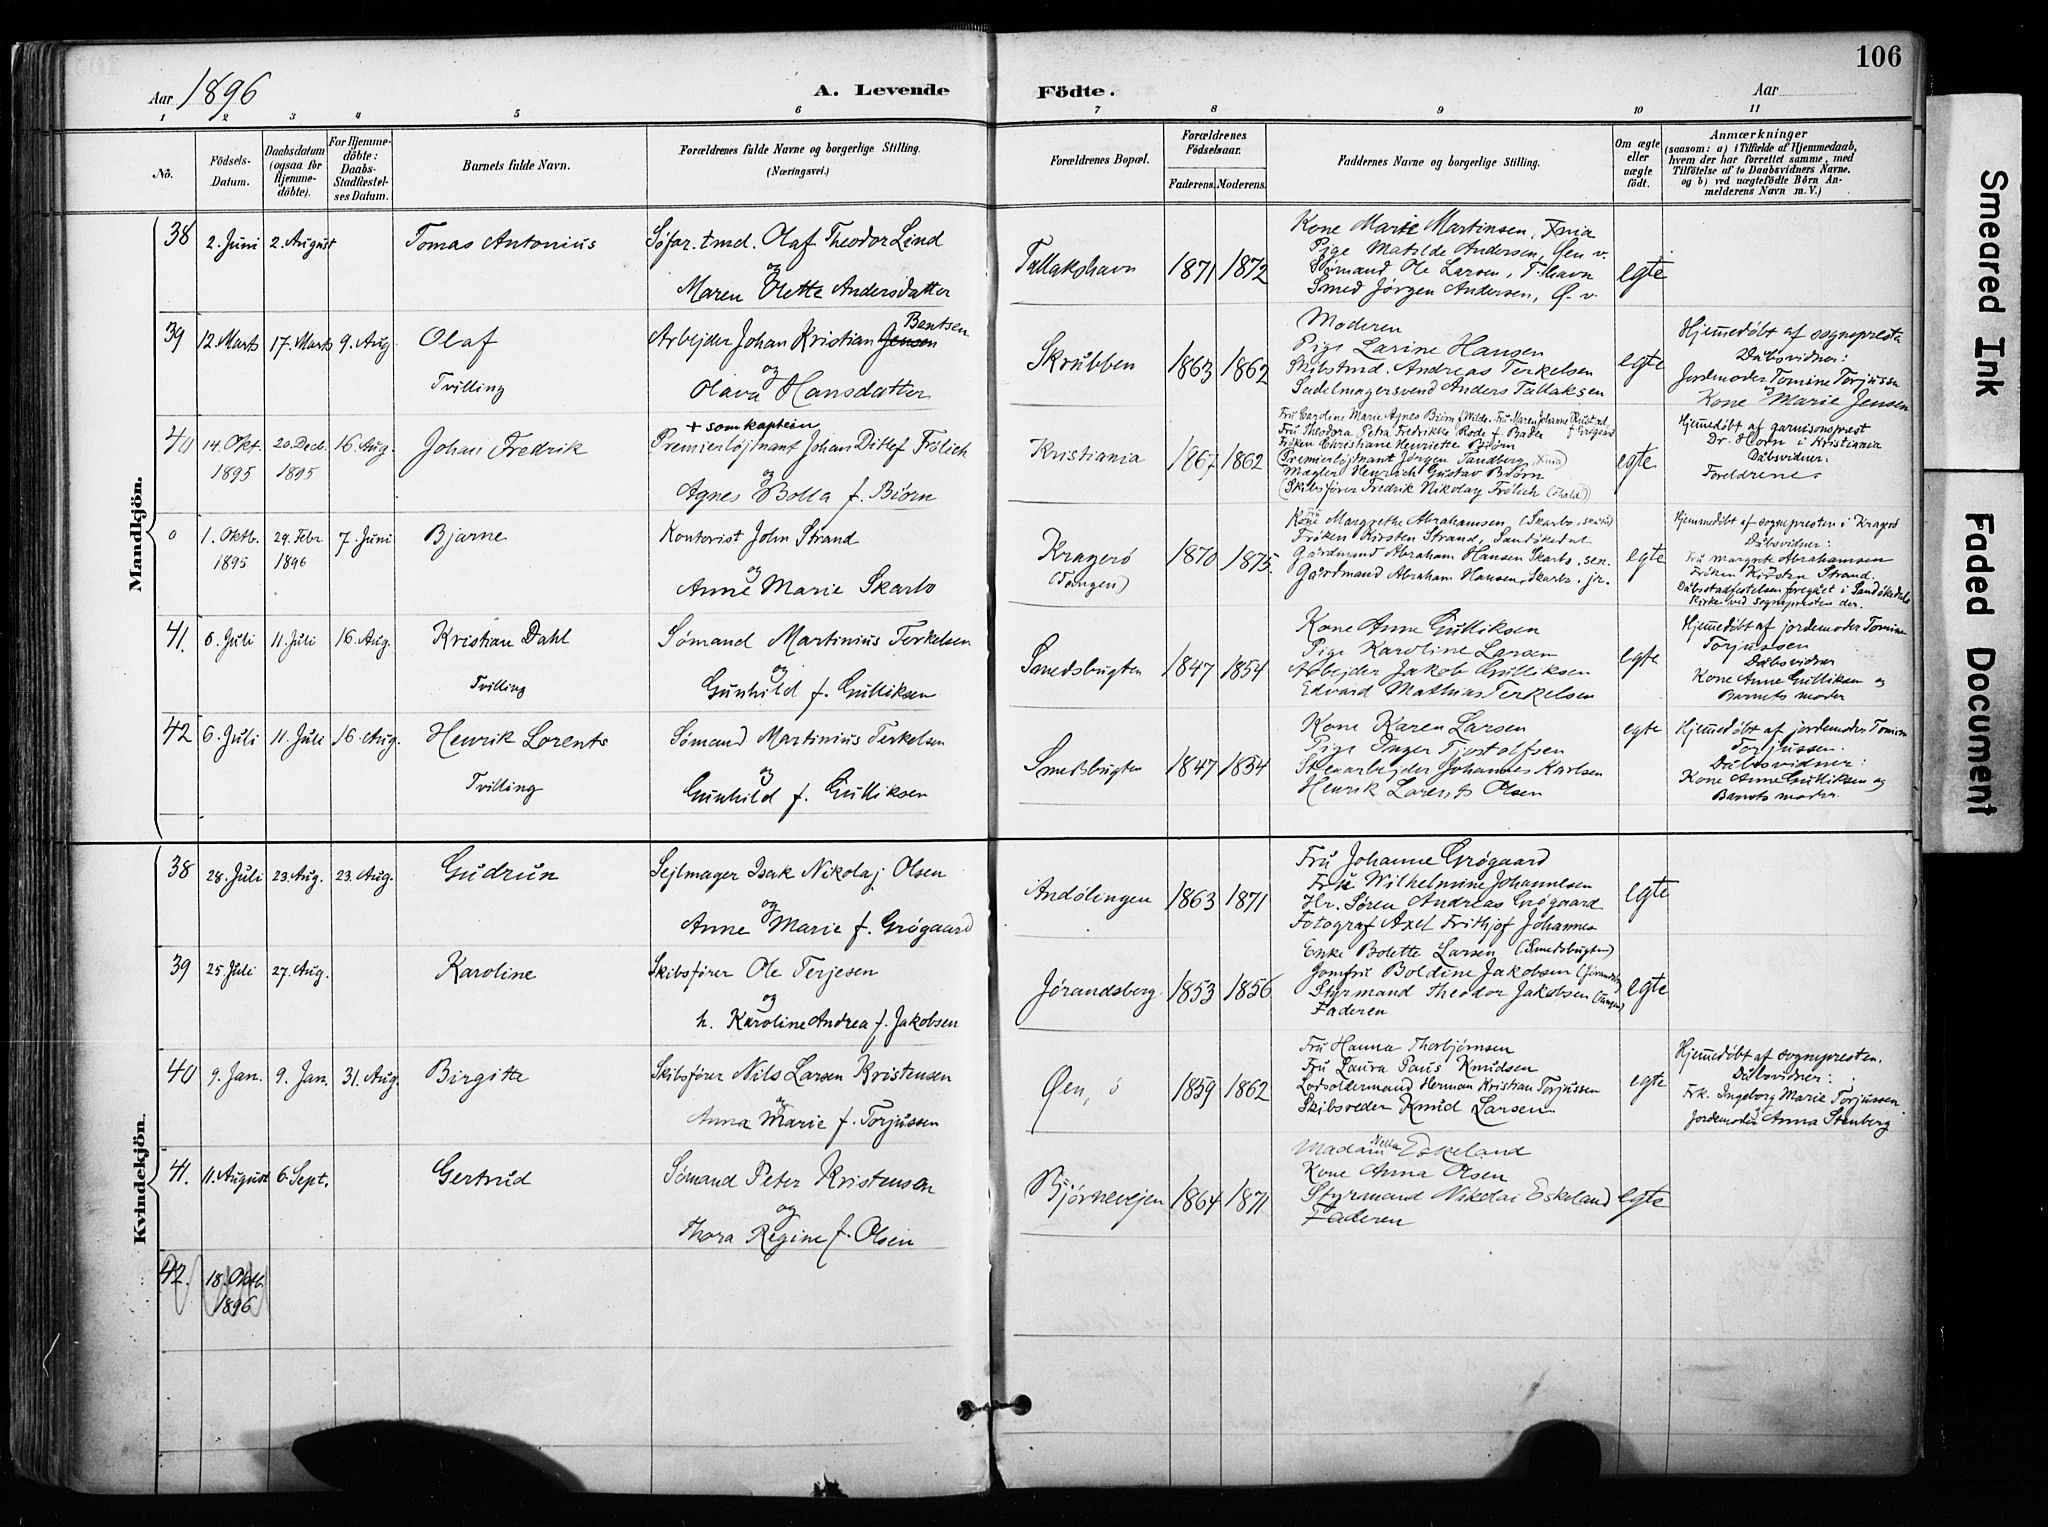 106
Aar 1896
A. Levende
Födte.
Aar
1 2 3 4 5 6 7 8 9 10 11
No.
Födsels-Datum.
Daabsdatum (ogsaa för Hjemme-döbte).
For Hjemme-döbte: Daabs-Stadfæstel-ses Datum.
Barnets fulde Navn.
Forældrenes fulde Navne og borgerlige Stilling. (Næringsvei.)
Forældrenes Bopæl.
Forældrenes Födselsaar.
Faderens. Moderens.
Faddernes Navne og borgerlige Stilling.
Om ægte eller uægte födt.
Anmærkninger
(saasom: a) i Tilfælde af Hjemmedaab, hvem der har forrettet samme, med Tilföielse af to Daabsvidners Navne. og b) ved uægtefödte Börn An-melderens Navn m. V.)
Mandkjön.
38 2. Juni 2. August Tomas Antonius
Søfar. tmd. Olaf Theodor Lind
og
Maren Olette Andersdatter
Tallakshavn 1871 1872
Kone Marie Martinsen,
Pige Matilde Andersen, Øen v.
Sømand Ole Larsen, T.havn
Smed Jørgen Andersen, Ø. v.
egte
39 12. Marts 17. Marts 9. Aug. Olaf
Tvilling
Bentsen
Arbejder Johan Kristian Jensen
og
Olava Hansdatter
Skrubben 1863 1862
Moderen
Pige Larine Hansen
Skibstmd. Andreas Terkelsen
Sadelmagersvend Anders Tallaksen
egte
Hjemmedøbt af sognepresten
Dåbsvidner:
Jordemoder Tomine Torjussen
og
Kone Marie Jensen
40 14. Okt. 1895 20. Decb. 1895 16. Aug. Johan Fredrik
+ som kaptein
Premierløjtnant Johan Ditlef Frölich
og
Agnes Bolla f. Biørn
Kristiania 1867 1862
Fru Caroline Marie Agnes Biørn f. Wilde. Fru Maren Johanne
f. Grøgaard
Fru Theodora Petra Fredrikke Rode f. Bader
Frøken Christiane Henriette Biørn
Premierløjtnant Jørgen Tandberg
Mægler Henrich Gustav Biørn
Skibsfører Fredrik Nikolay Frölich
egte
Hjemmedøbt af garnisonsprest
Dr. Horn i Kristiania
Dåbsvidner:
Foreldrene
0 1. Oktb. 1895 29. Febr 1896 7. Juni Bjarne
Kontorist John Strand
og
Anne Marie Skarbo
Kragerø
(Tangen)
1870 1875.
Fru
Kone Margrethe Abrahamsen (Skarbo,
Frøken Kirsten Strand, Sandøkedal
Gårdmand Abraham Hansen Skarbo, sen.
Gårdmand Abraham Hansen, Skarbo, jr.
egte
Hjemmedøbt af sognepresten i Kragerø
Dåbsvidner:
Fru Margrete Abrahamsen
Frøken Kirsten Strand.
Dåbsstadfestelsen foregået i Sandøkedals
Kirke ved sognepresten der.
41. 6. Juli 11. Juli 16. Aug. Kristian Dahl
Tvilling
Sømand Martinius Terkelsen
og
Gunhild f. Gulliksen
Smedsbugten 1847 1854
Kone Anne Gulliksen
Pige Karoline Larsen
Arbejder Jakob Gulliksen
Edvard Mathias Terkelsen
egte
Hjemmedøbt af jordemoder Tomine
Torjussen
Dåbsvidner
Kone Anne Gulliksen og
Barnets moder
42 6. Juli 11. Juli 16. Aug. Henrik Lorents
Tvilling
Sømand Martinius Terkelsen
og
Gunhild f. Gulliksen
Smedsbugten 1847 1854
Kone Karen Larsen
Pige Inger Tjostolfsen
Stenarbejder Johannes Karlsen
Henrik Lorents Olsen
egte
Hjemmedøbt af jordemoder Tomine
Torjussen.
Dåbsvidner:
Kone Anne Gulliksen og
Barnets moder.
Kvindekjön.
38 28. Juli 23. Aug. 23. Aug. Gudrun
Sejlmager Isak Nikolaj Olsen
og
Anne Marie f. Grøgaard
Andølingen 1863 1871
Fru Johanne Grøgaard
Frk. Wilhelmine Johannesen
Hr. Søren Andreas Grøgaard
Fotograf Axel Frithjof Johannes
egte
39 25. Juli 27. Aug. Karoline
Skibsfører Ole Terjesen
og
h. Karoline Andrea f. Jakobsen
Jørandsberg 1853 1856
Enke Bolette Larsen (Smedsbugten)
Jomfru Boldine Jakobsen (Jørandsberg
Styrmand Theodor Jakobsen (Tangen)
Faderen
egte
40 9. Jan. 9. Jan. 31. Aug. Birgitte
Skibsfører Nils Larsen Kristensen
og
Anna Marie f. Torjussen
Øen, ø 1859 1862
Fru Hanna Thorbjørnsen
Fru Laura Paus Knudsen
Lodsoldermand Herman Kristian Torjussen
Skibsreder Knud Larsen
egte
Hjemmedøbt af sognepresten.
Dåbsvidner:
Frk. Ingeborg Marie Torjussen
og
Jordemoder Anna Stenberg
41. 11. August 6. Sept. Gertrud
Sømand Peter Kristensen
og
Thora Regine f. Olsen
Bjørnevejen 1864 1871
Madam Nella Eskeland
Kone Anna Olsen
Styrmand Nikolai Eskeland
Faderen
egte
42. 18. Oktb. 1896
Smeared Ink
Faded Document